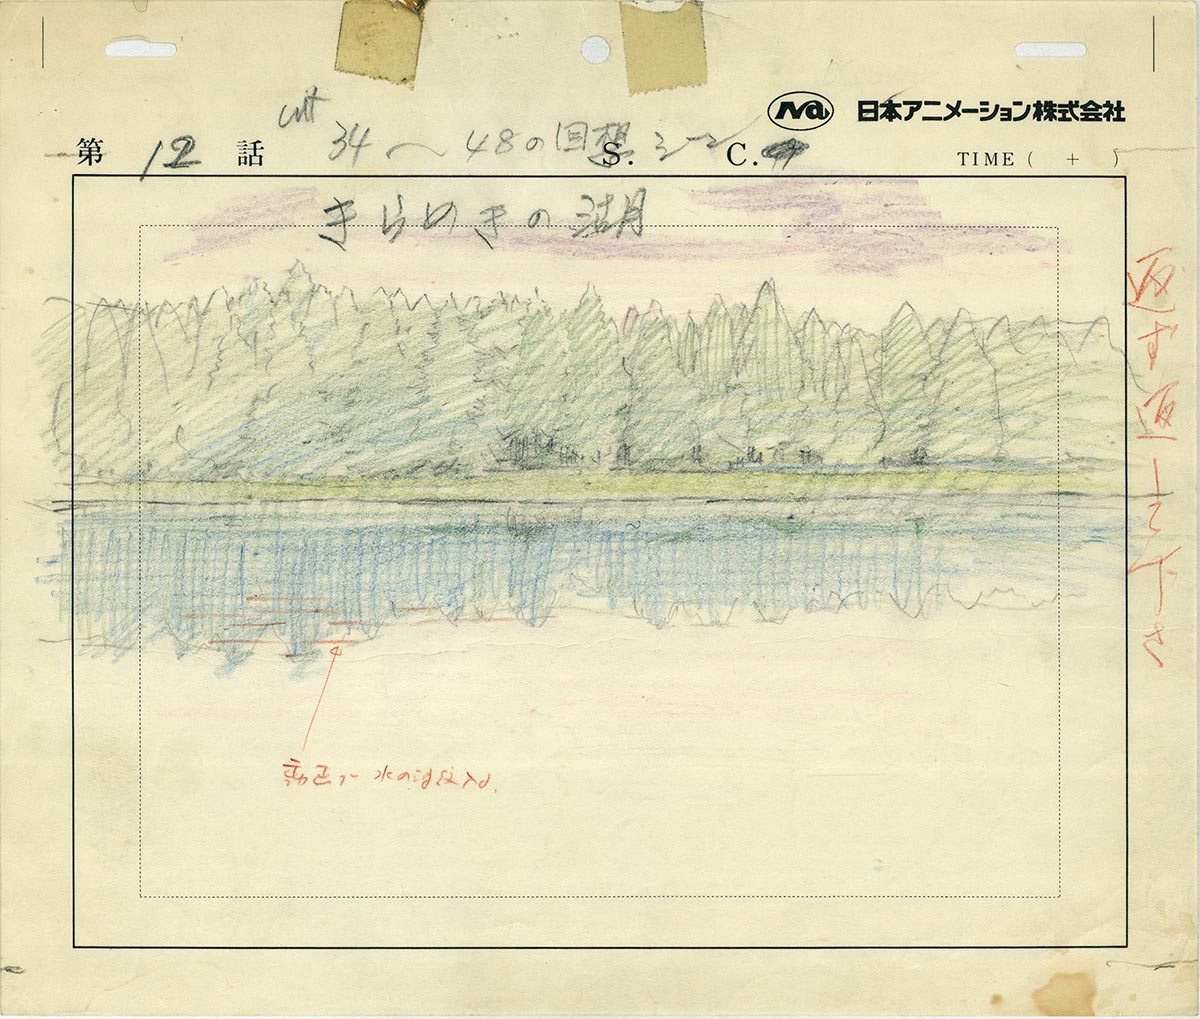 Na 日本アニメーション株式会社
第 12 話 cut 34〜48の回想シーン S. C. TIME ( + )
きらめきの湖
返す返して下さ
動画にて 水の波紋入る.